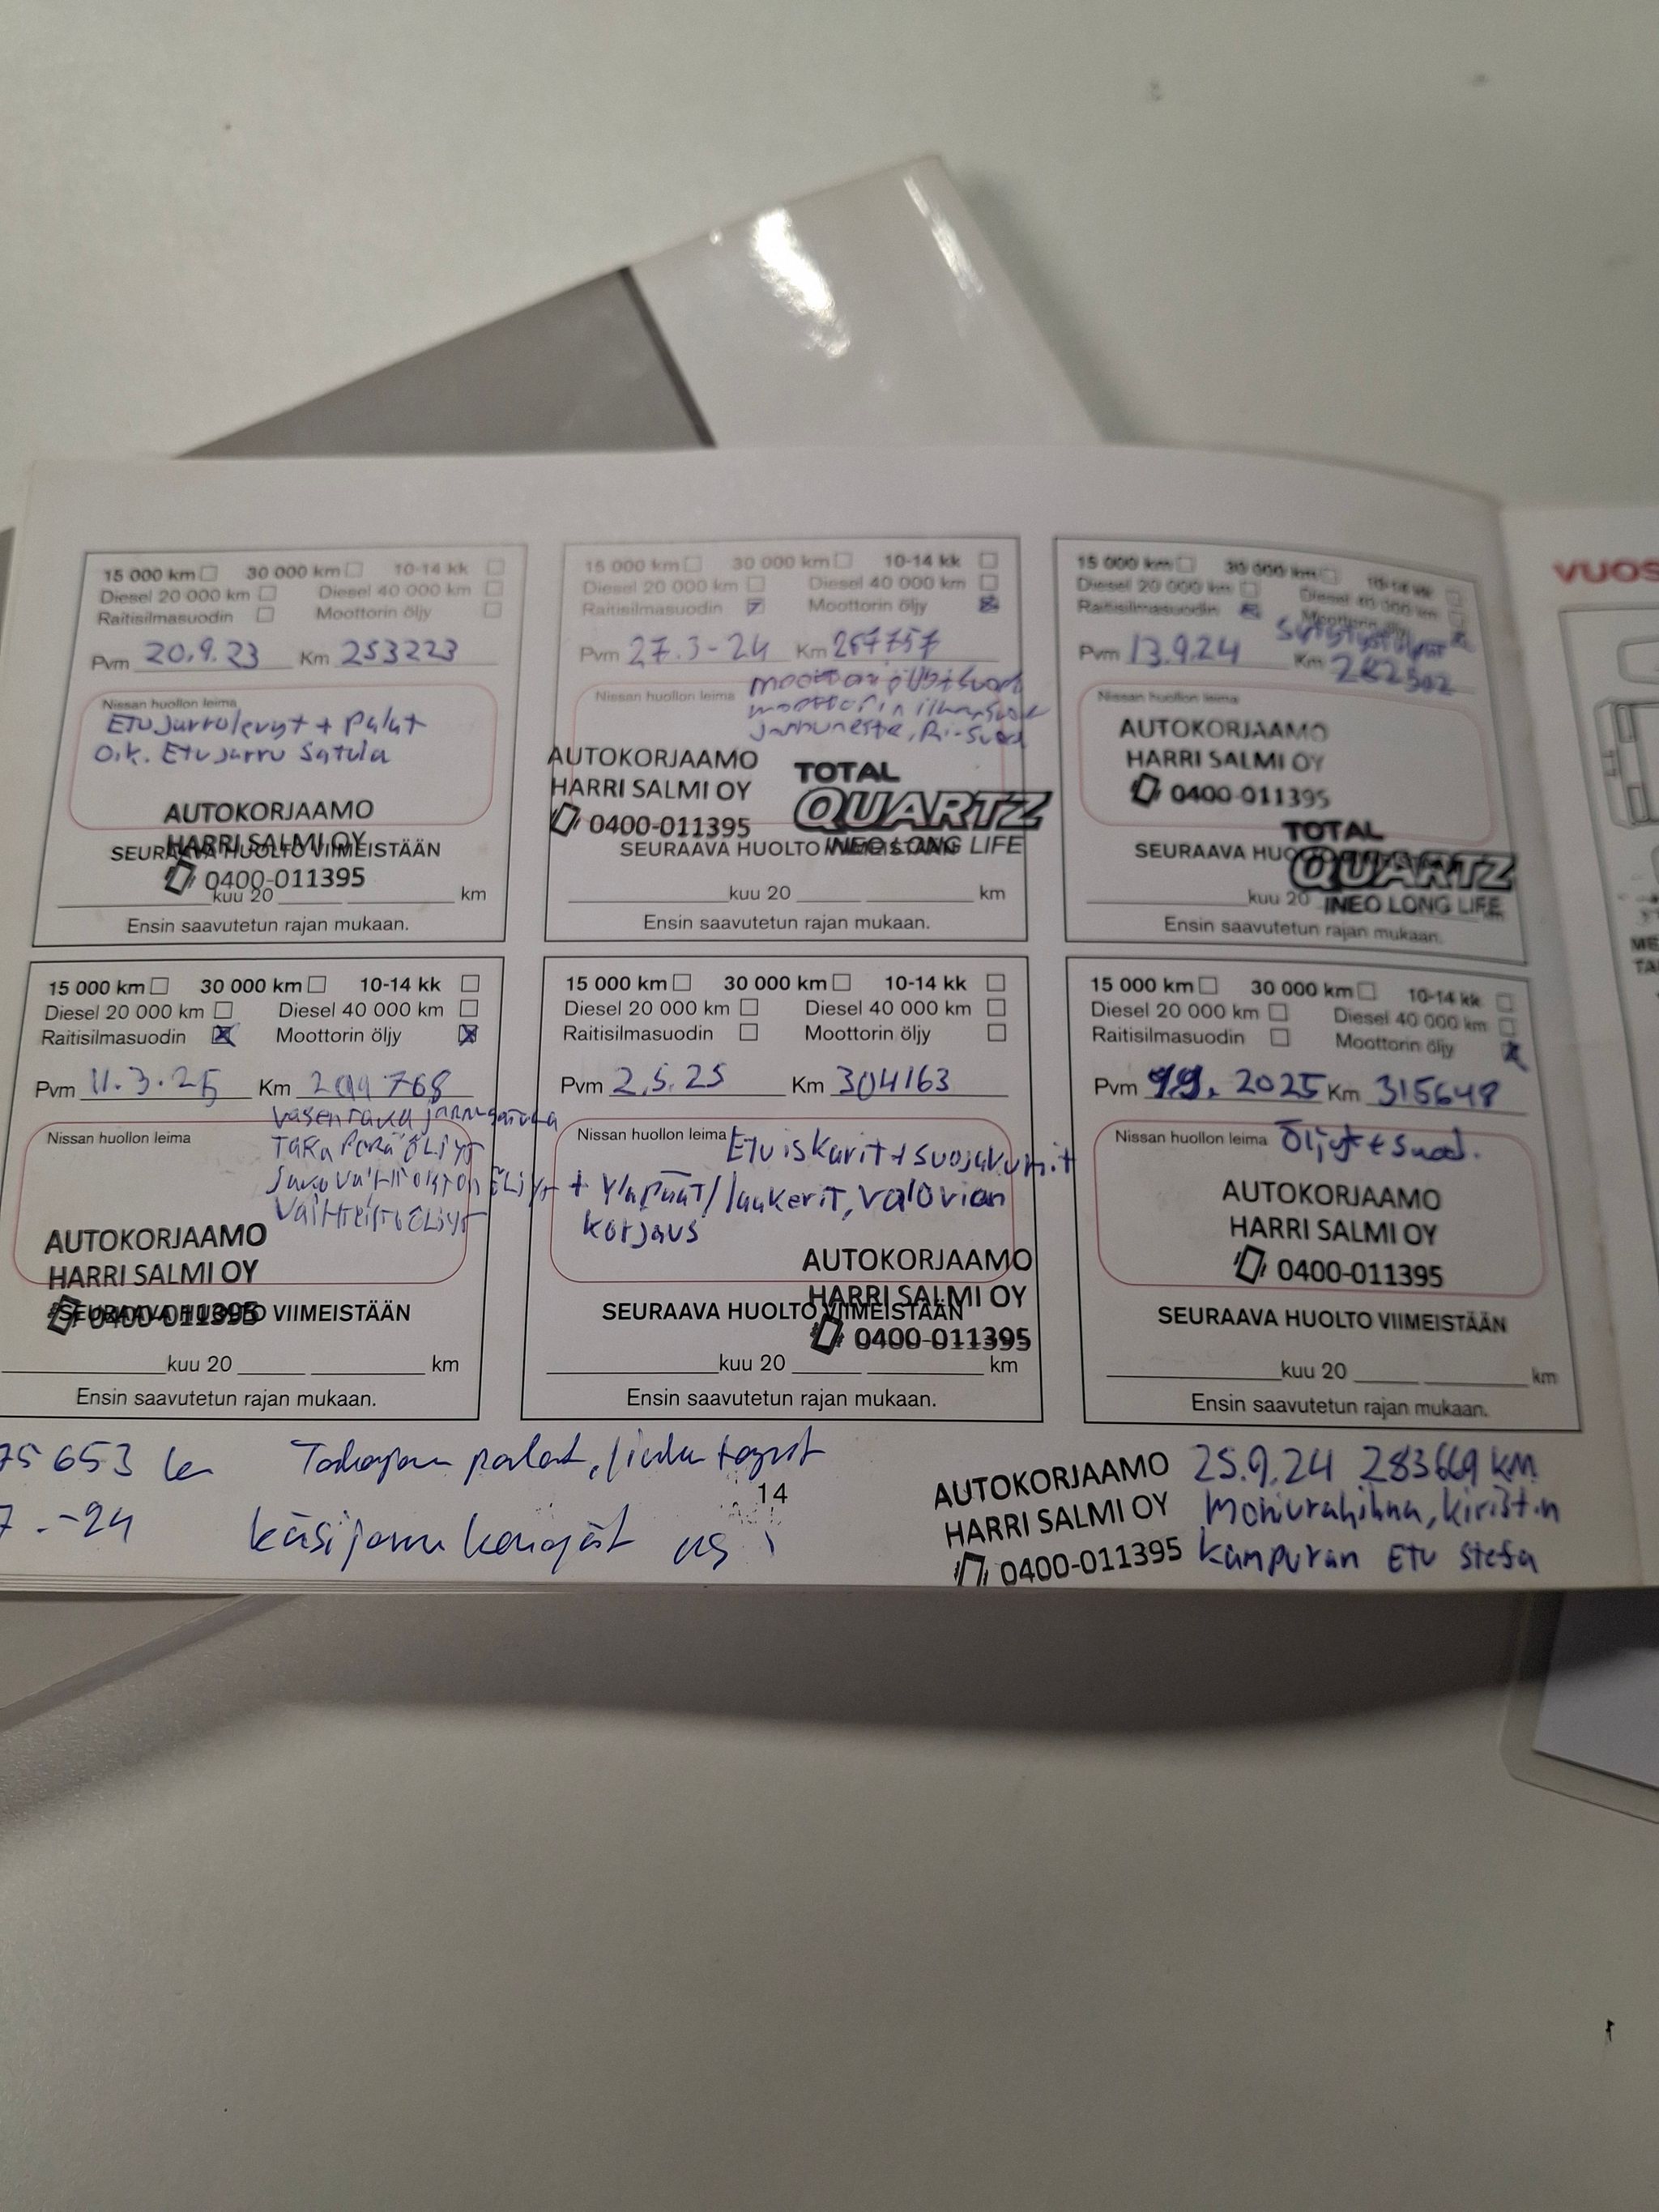 15 000 km 30 000 km 10-14 kk
Diesel 20 000 km Diesel 40 000 km
Raitisilmasuodin Moottorin öljy
Pvm 20.9.23 Km 253223
Nissan huollon leima
Etujarrulevyt + Palat
Oik. Etujarru Satula
AUTOKORJAAMO
HARRI SALMI OY
SEURAAVA HUOLTO VIIMEISTÄÄN
0400-011395
kuu 20 km
Ensin saavutetun rajan mukaan.
15 000 km 30 000 km 10-14 kk
Diesel 20 000 km Diesel 40 000 km
Raitisilmasuodin Moottorin öljy
Pvm 27.3-24 Km 267757
Nissan huollon leima
jarruneste, Ri-Suod
AUTOKORJAAMO
HARRI SALMI OY
0400-011395
TOTAL
QUARTZ
INEO LONG LIFE
SEURAAVA HUOLTO VIIMEISTÄÄN
kuu 20 km
Ensin saavutetun rajan mukaan.
15 000 km 30 000 km 10-14 kk
Diesel 20 000 km Diesel 40 000 km
Raitisilmasuodin Moottorin öljy
Pvm 13.9.24 Km 282502
Nissan huollon leima
AUTOKORJAAMO
HARRI SALMI OY
0400-011395
TOTAL
QUARTZ
INEO LONG LIFE
SEURAAVA HUOLTO
kuu 20
Ensin saavutetun rajan mukaan.
15 000 km 30 000 km 10-14 kk
Diesel 20 000 km Diesel 40 000 km
Raitisilmasuodin Moottorin öljy
Pvm 11.3.25 Km 299768
Vasen taka jarrusatula
Nissan huollon leima
Taka Perä ÖLJYT
Jakovaihteiston ÖLJYT
Vaihteisto ÖLJYT
AUTOKORJAAMO
HARRI SALMI OY
0400-011395
SEURAAVA HUOLTO VIIMEISTÄÄN
kuu 20 km
Ensin saavutetun rajan mukaan.
15 000 km 30 000 km 10-14 kk
Diesel 20 000 km Diesel 40 000 km
Raitisilmasuodin Moottorin öljy
Pvm 2.5.25 Km 304163
Nissan huollon leima Etuiskarit + suojakumit
+ Yläpäät/laakerit, valovian
korjaus
AUTOKORJAAMO
HARRI SALMI OY
SEURAAVA HUOLTO VIIMEISTÄÄN
0400-011395
kuu 20 km
Ensin saavutetun rajan mukaan.
15 000 km 30 000 km 10-14 kk
Diesel 20 000 km Diesel 40 000 km
Raitisilmasuodin Moottorin öljy
Pvm 9.9. 2025 Km 315648
Nissan huollon leima Öljyt + Suod.
AUTOKORJAAMO
HARRI SALMI OY
0400-011395
SEURAAVA HUOLTO VIIMEISTÄÄN
kuu 20 km
Ensin saavutetun rajan mukaan.
75653 km Takajarru palat, liuku tapit
7.-24 käsijarru kengät
14
AUTOKORJAAMO
HARRI SALMI OY
0400-011395
25.9.24 283669 KM
Moniurahihna, kiristin
kampuran Etu stefa
VUOS
ME
TA